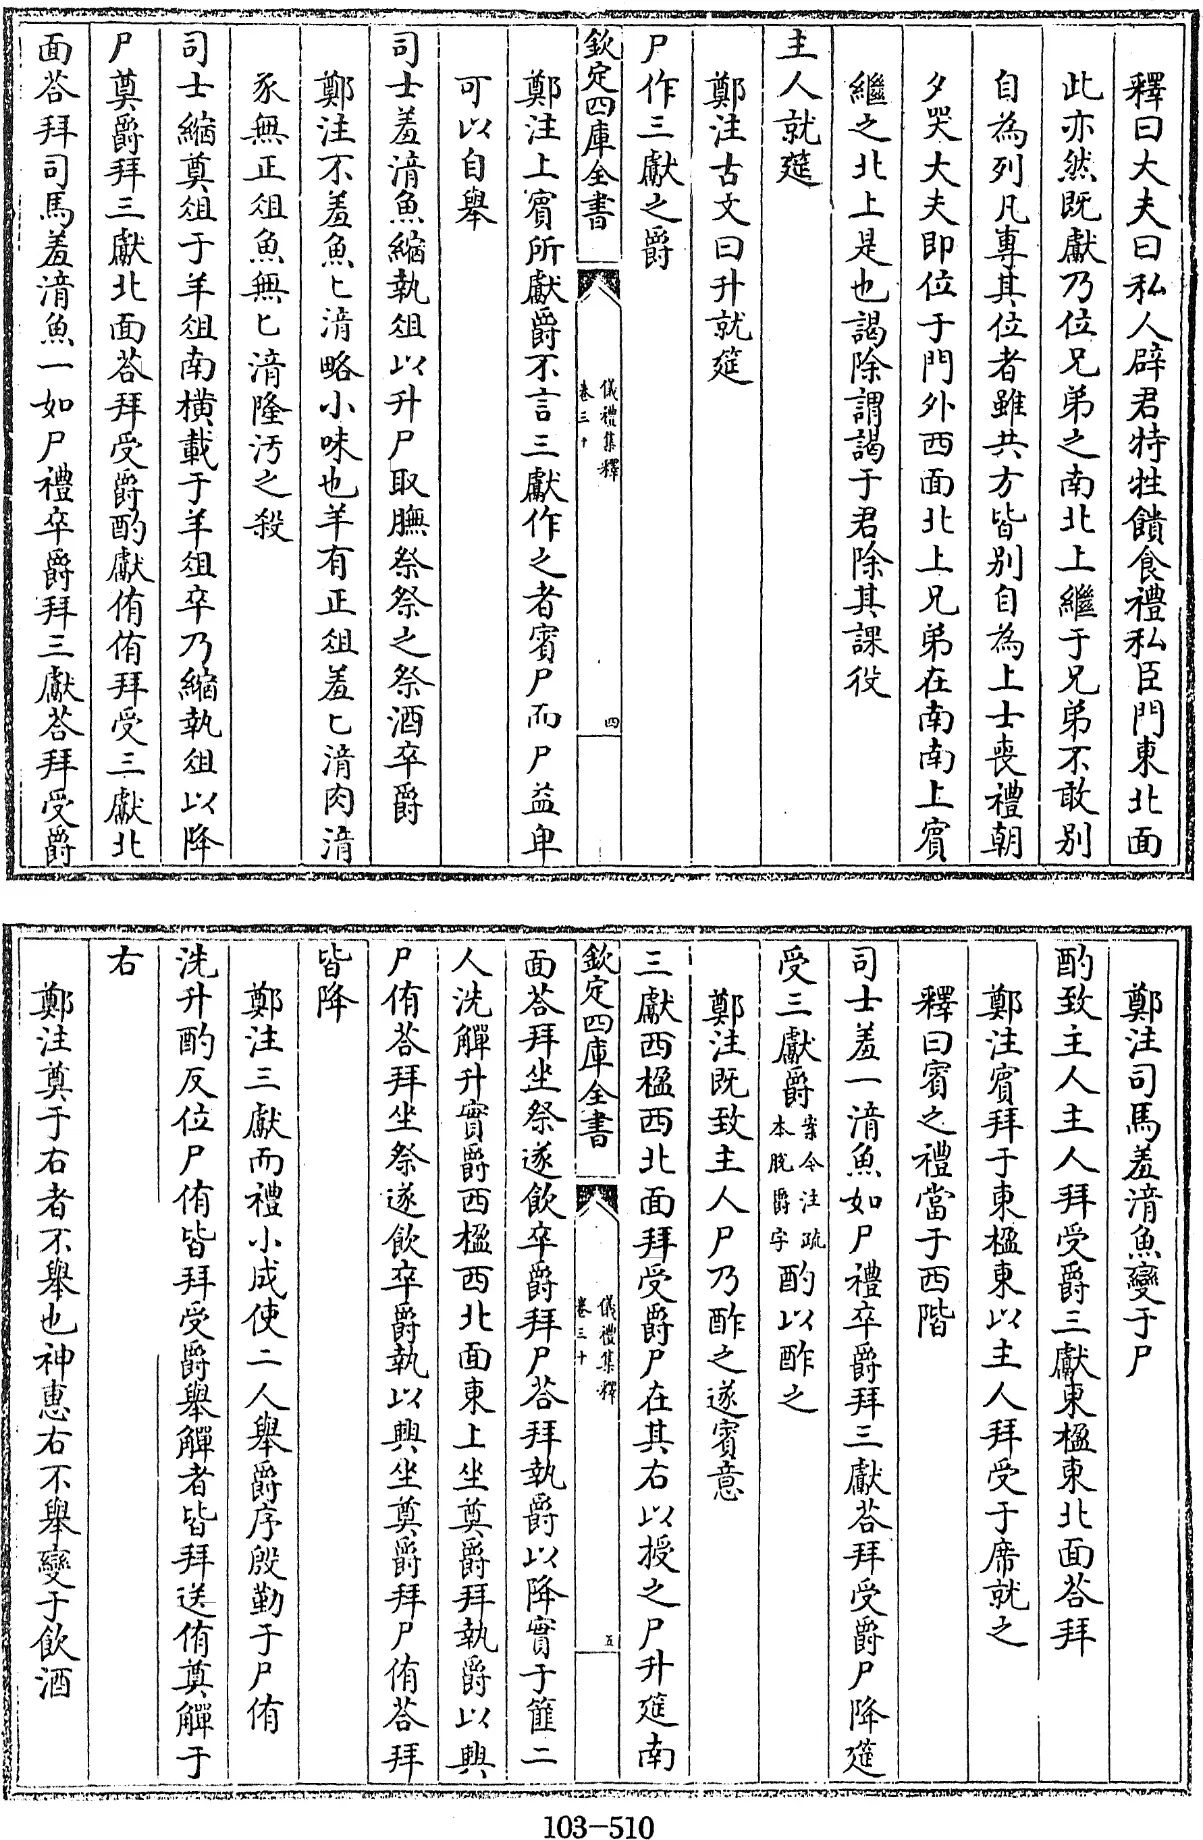 釋曰大夫曰私人辟君特牲饋食禮私臣門東北面
此亦然既獻乃位兄弟之南北上繼于兄弟不敢别
自為列凡專其位者雖共方皆别自為上士喪禮朝
夕哭大夫即位于門外西面北上兄弟在南南上賓
繼之北上是也謁除謂謁于君除其課役
主人就筵
鄭注古文曰升就筵
尸作三獻之爵
欽定四庫全書
儀禮集釋
卷三十
四
鄭注上賓所獻爵不言三獻作之者賓尸而尸益卑
可以自舉
司士羞湆魚縮執俎以升尸取膴祭祭之祭酒卒爵
鄭注不羞魚匕湆略小味也羊有正俎羞匕湆肉湆
豕無正俎魚無匕湆隆汚之殺
司士縮奠俎于羊俎南横載于羊俎卒乃縮執俎以降
尸奠爵拜三獻北面荅拜受爵酌獻侑侑拜受三獻北
面荅拜司馬羞湆魚一如尸禮卒爵拜三獻荅拜受爵
鄭注司馬羞湆魚變于尸
酌致主人主人拜受爵三獻東楹東北面荅拜
鄭注賓拜于東楹東以主人拜受于席就之
釋曰賓之禮當于西階
司士羞一湆魚如尸禮卒爵拜三獻荅拜受爵尸降筵
受三獻爵案今注疏本脱爵字酌以酢之
鄭注既致主人尸乃酢之遂賓意
三獻西楹西北面拜受爵尸在其右以授之尸升筵南
欽定四庫全書
儀禮集釋
卷三十
五
面荅拜坐祭遂飲卒爵拜尸荅拜執爵以降實于篚二
人洗觶升實爵西楹西北面東上坐奠爵拜執爵以興
尸侑荅拜坐祭遂飲卒爵執以興坐奠爵拜尸侑荅拜
皆降
鄭注三獻而禮小成使二人舉爵序殷勤于尸侑
洗升酌反位尸侑皆拜受爵舉觶者皆拜送侑奠觶于
右
鄭注奠于右者不舉也神惠右不舉變于飲酒
103-510